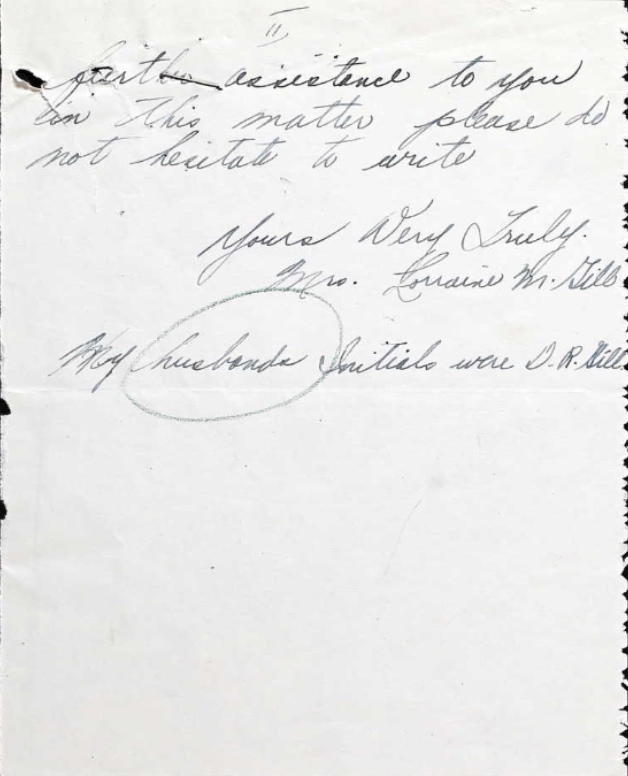 II
further assistance to you
in this matter please do
not hesitate to write
Yours Very Truly.
Mrs. Lorraine M. Gill
My husbands Initials were D. R. Gill